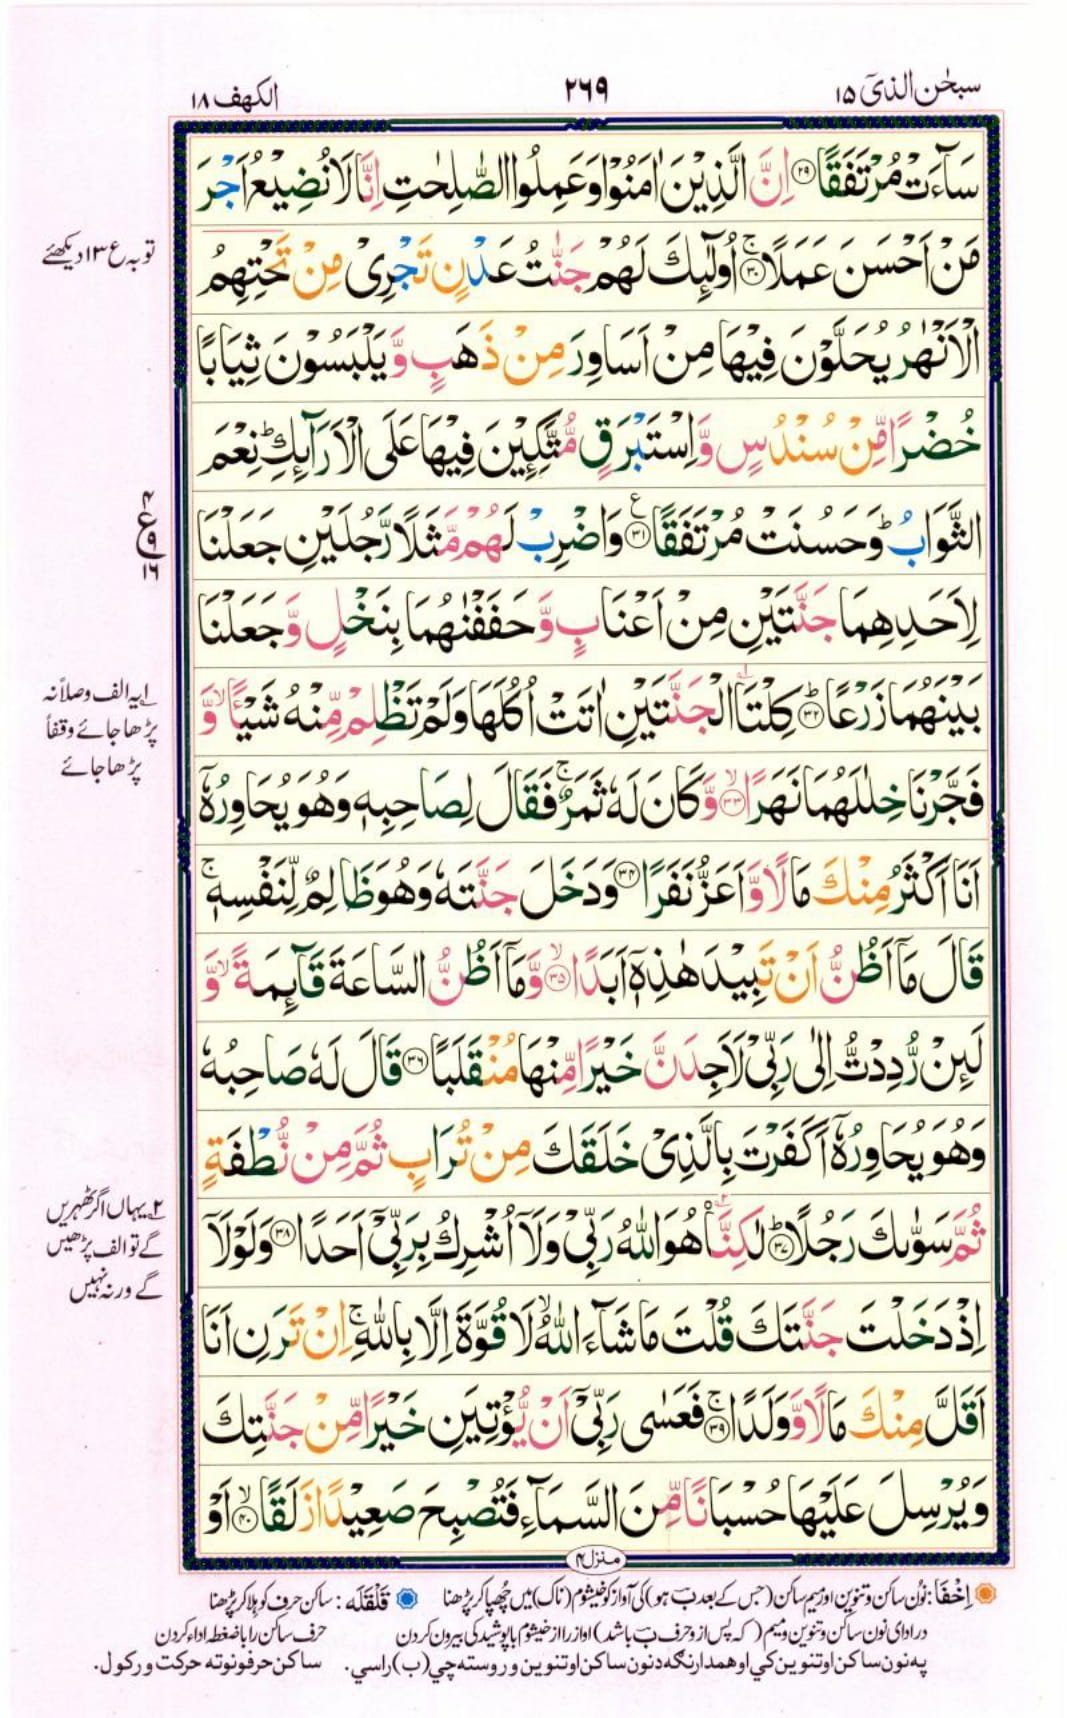 سبحٰن الذیٓ ۱۵
۲۶۹
الکهف ۱۸
سَآءَتْ مُرْتَفَقًا ۝۲۹ اِنَّ الَّذِيْنَ اٰمَنُوْا وَعَمِلُوا الصّٰلِحٰتِ اِنَّا لَا نُضِيْعُ اَجْرَ
مَنْ اَحْسَنَ عَمَلًا ۝۳۰ۚ اُولٰٓئِكَ لَهُمْ جَنّٰتُ عَدْنٍ تَجْرِىْ مِنْ تَحْتِهِمُ
الْاَنْهٰرُ يُحَلَّوْنَ فِيْهَا مِنْ اَسَاوِرَ مِنْ ذَهَبٍ وَّيَلْبَسُوْنَ ثِيَابًا
خُضْرًا مِّنْ سُنْدُسٍ وَّاِسْتَبْرَقٍ مُّتَّكِـِٕيْنَ فِيْهَا عَلَى الْاَرَآئِكِ ؕ نِعْمَ
الثَّوَابُ ؕ وَحَسُنَتْ مُرْتَفَقًا ۝۳۱ع وَاضْرِبْ لَهُمْ مَّثَلًا رَّجُلَيْنِ جَعَلْنَا
لِاَحَدِهِمَا جَنَّتَيْنِ مِنْ اَعْنَابٍ وَّحَفَفْنٰهُمَا بِنَخْلٍ وَّجَعَلْنَا
بَيْنَهُمَا زَرْعًا ۝۳۲ؕ كِلْتَا الْجَنَّتَيْنِ اٰتَتْ اُكُلَهَا وَلَمْ تَظْلِمْ مِّنْهُ شَيْـًٔا ۙ وَّ
فَجَّرْنَا خِلٰلَهُمَا نَهَرًا ۝۳۳ۙ وَّكَانَ لَهٗ ثَمَرٌ ۚ فَقَالَ لِصَاحِبِهٖ وَهُوَ يُحَاوِرُهٗۤ
اَنَا اَكْثَرُ مِنْكَ مَالًا وَّاَعَزُّ نَفَرًا ۝۳۴ وَدَخَلَ جَنَّتَهٗ وَهُوَ ظَالِمٌ لِّنَفْسِهٖ ۚ
قَالَ مَاۤ اَظُنُّ اَنْ تَبِيْدَ هٰذِهٖۤ اَبَدًا ۝۳۵ۙ وَّمَاۤ اَظُنُّ السَّاعَةَ قَآئِمَةً ۙ وَّ
لَئِنْ رُّدِدْتُّ اِلٰى رَبِّىْ لَاَجِدَنَّ خَيْرًا مِّنْهَا مُنْقَلَبًا ۝۳۶ قَالَ لَهٗ صَاحِبُهٗ
وَهُوَ يُحَاوِرُهٗۤ اَكَفَرْتَ بِالَّذِىْ خَلَقَكَ مِنْ تُرَابٍ ثُمَّ مِنْ نُّطْفَةٍ
ثُمَّ سَوّٰىكَ رَجُلًا ۝۳۷ؕ لٰكِنَّا۟ هُوَ اللّٰهُ رَبِّىْ وَلَاۤ اُشْرِكُ بِرَبِّىْۤ اَحَدًا ۝۳۸ وَلَوْلَاۤ
اِذْ دَخَلْتَ جَنَّتَكَ قُلْتَ مَا شَآءَ اللّٰهُ ۙ لَا قُوَّةَ اِلَّا بِاللّٰهِ ۚ اِنْ تَرَنِ اَنَا
اَقَلَّ مِنْكَ مَالًا وَّوَلَدًا ۝۳۹ۚ فَعَسٰى رَبِّىْۤ اَنْ يُّؤْتِيَنِ خَيْرًا مِّنْ جَنَّتِكَ
وَيُرْسِلَ عَلَيْهَا حُسْبَانًا مِّنَ السَّمَآءِ فَتُصْبِحَ صَعِيْدًا زَلَقًا ۝۴۰ۙ اَوْ
منزل ۴
توبہ ع ۱۳ دیکھئے
۴
ع
۹
۱۶
۱ یہ الف وصلاً نہ
پڑھا جائے وقفاً
پڑھا جائے
۲ یہاں اگر ٹھہریں
گے تو الف پڑھیں
گے ورنہ نہیں
اِخْفَا: نُون ساکن و تنوین اور میم ساکن (جس کے بعد بَ ہو) کی آواز کو خیشوم (ناک) میں چُھپا کر پڑھنا
قَلْقَلَه: ساکن حرف کو ہلا کر پڑھنا
در ادای نون ساکن و تنوین و میم (که پس از و حرف بَ باشد) اواز را از خیشوم با پوشیدگی بیرون کردن
حرف ساکن را با ضغطه اداء کردن
په نون ساکن او تنوین کي او همدارنګه دنون ساکن او تنوین و روسته چي (ب) راسي.
ساکن حرفونو ته حرکت ورکول.